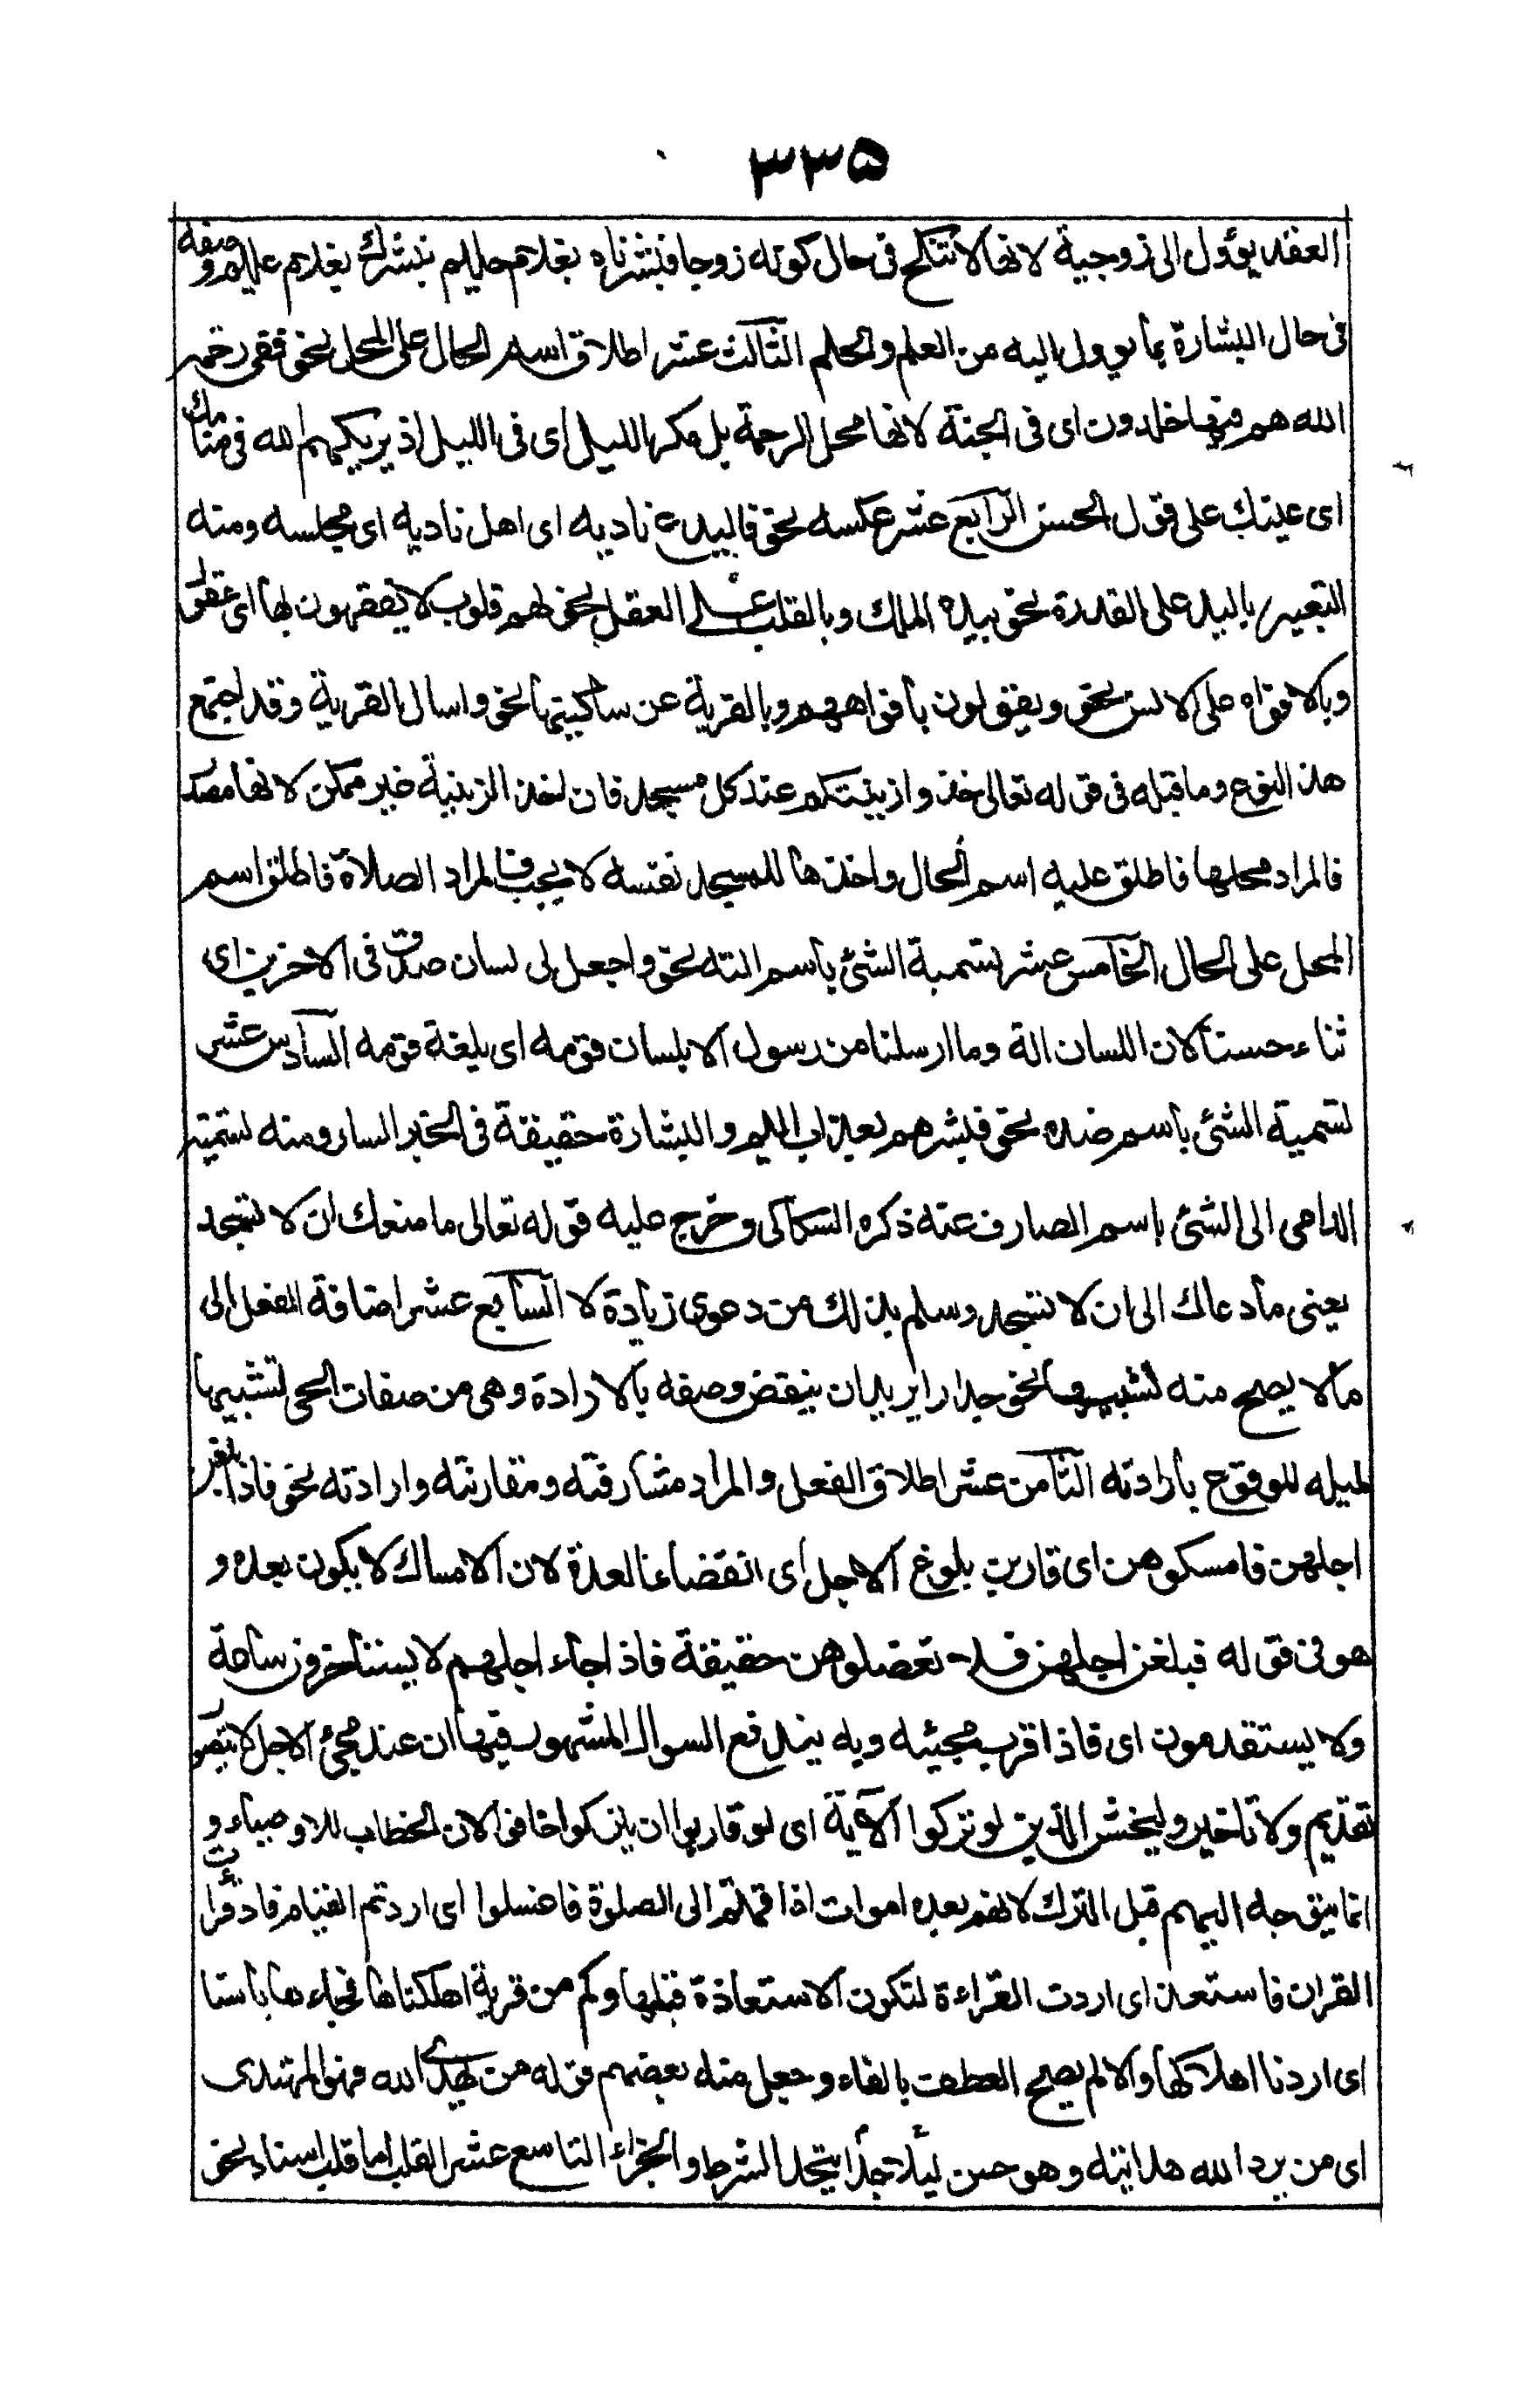 ٣٣٥
العقد يؤول الى زوجية لانها لا تنكح فى حال كونه زوجا فبشرناه بغلام حليم نبشرك بغلام عليم وصفه
فى حال البشارة بما يوول اليه من العلم والحلم الثالث عشر اطلاق اسم الحال على المحل نحو ففى رحمة
الله هم فيها خلدون اى فى الجنة لانها محل الرحمة بل مكر الليل اى فى الليل اذ يريكهم الله فى منامك
اى عينك على قول الحسن الرابع عشر عكسه نحو فاليدع ناديه اى اهل ناديه اى مجلسه ومنه
التعبير باليد على القدرة نحو بيده الملك وبالقلب على العقل نحو لهم قلوب لا يفقهون بها اى عقل
وبالافواه على الالسن نحو ويقولون بافواههم وبالقرية عن ساكنيها نحو واسال القرية وقد اجتمع
هذا النوع وما قبله فى قوله تعالى خذوا زينتكم عند كل مسجد فان اخذ الزينة غير ممكن لانها مصدر
فالمراد محلها فاطلق عليه اسم الحال واخذها للمسجد نفسه لا يجب فالمراد الصلاة فاطلق اسم
المحل على الحال الخامس عشر تسمية الشئ باسم الته نحو واجعل لى لسان صدق فى الاخرين اى
ثناء حسنا لان اللسان الة وما ارسلنا من رسول الا بلسان قومه اى بلغة قومه السادس عشر
تسمية الشئ باسم ضده نحو فبشرهم بعذاب اليم والبشارة حقيقة فى الخبر السار ومنه تسمية
الداعى الى الشئ باسم الصارف عنه ذكره السكاكى وخرج عليه قوله تعالى ما منعك ان لا تسجد
يعنى ما دعاك الى ان لا تسجد وسلم بذلك من دعوى زيادة لا السابع عشر اضافة الفعل الى
ما لا يصح منه تشبيها نحو جدارا يريد ان ينقض وصفه بالارادة وهى من صفات الحى تشبيها
لميله للوقوع بارادته الثامن عشر اطلاق الفعل والمراد مشارفته ومقارنته وارادته نحو فاذا بلغن
اجلهن فامسكوهن اى قاربن بلوغ الاجل اى انقضاء العدة لان الامساك لا يكون بعده و
هو فى قوله فبلغن اجلهن فلا تعضلوهن حقيقة فاذا جاء اجلهم لا يستأخرون ساعة
ولا يستقدمون اى فاذا قرب مجيئه وبه يندفع السوال المشهور فيها ان عند مجئ الاجل لا يتصور
تقديم ولا تاخير وليخش الذين لو تركوا الآية اى لو قاربوا ان يتركوا خافوا لان الخطاب للاوصياء و
انما يتوجه اليهم قبل الترك لانهم بعده اموات اذا قمتم الى الصلوة فاغسلوا اى اردتم القيام فاذا قرأت
القران فاستعذ اى اردت القراءة لتكون الاستعاذة قبلها وكم من قرية اهلكناها فجاءها باسنا
اى اردنا اهلاكها والا لم يصح العطف بالفاء وجعل منه بعضهم قوله من يهدى الله فهو المهتدى
اى من يرد الله هدايته وهو حسن لئلا جدا يتحد الشرط والجزاء التاسع عشر القلب اما قلب اسناد نحو